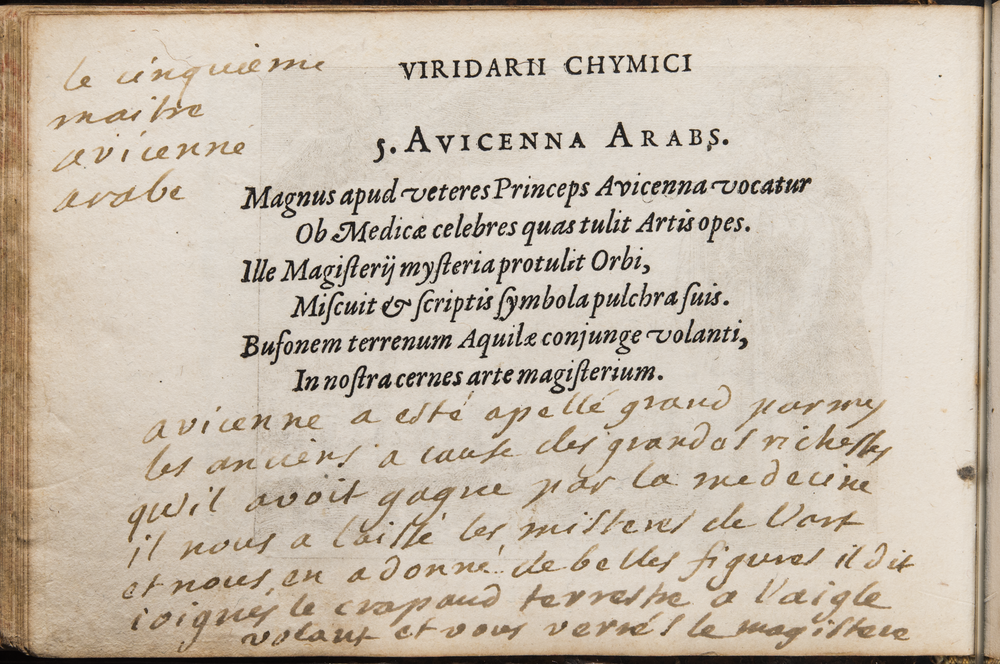 le cinquieme
maitre
avicenne
arabe
VIRIDARII CHYMICI
5. AVICENNA ARABS.
Magnus apud veteres Princeps Avicenna vocatur
Ob Medicæ celebres quas tulit Artis opes.
Ille Magiſterij myſteria protulit Orbi,
Miſcuit & ſcriptis ſymbola pulchra ſuis.
Bufonem terrenum Aquilæ conjunge volanti,
In noſtra cernes arte magiſterium.
avicenne a esté apellé grand parmy
les anciens a cause des grandes richesses
qu'il avoit gagne par la medecine
il nous a laissé les misteres de l'art
et nous en a donné de belles figures il dit
ioignés le crapaud terrestre a l'aigle
volant et vous verrés le magistere